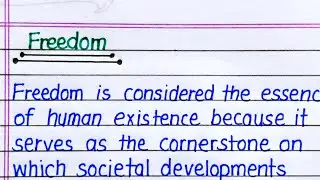 Freedom
Freedom is considered the essenc
of human existence because it
serves as the cornerstone on
which societal developments